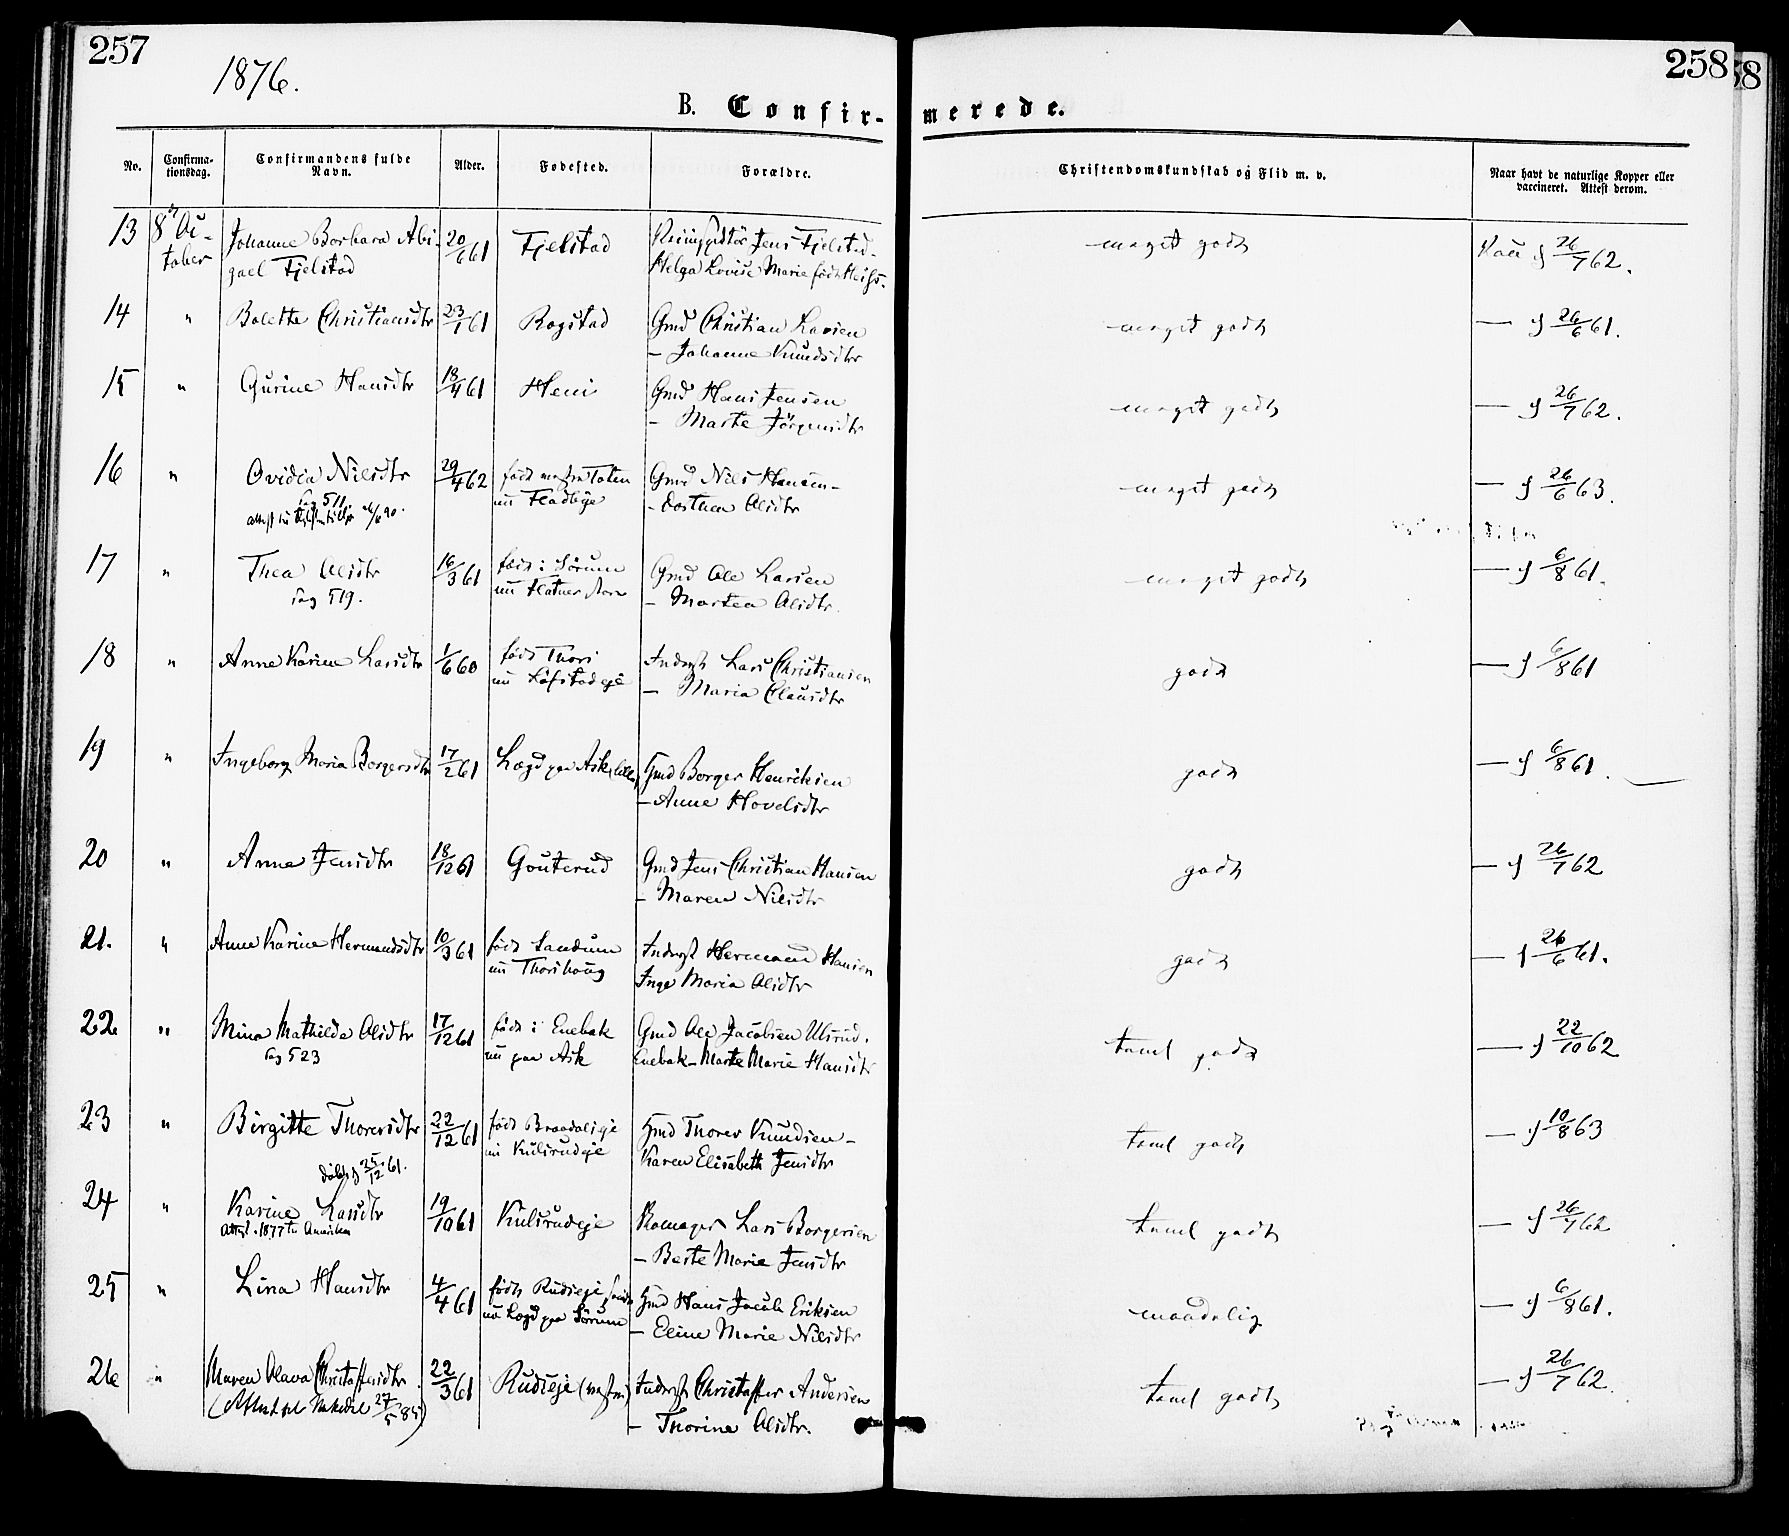 257
258
1876.
B. Confirmerede.
No. Confirmationsdag. Confirmandens fulde Navn. Alder. Fødested. Forældre. Christendomskundskab og Flid m. v. Naar havt de naturlige Kopper eller vaccineret. Attest derom.
13 8de October Johanne Barbara Abigael Fjelstad 20/6 61 Fjelstad Jens Fjelstad - Helga Lovise Marie født meget godt Vacc. 26/7 62.
14 " Bolette Christiansdtr 23/1 61 Rogstad Gmd Christian Larsen - Johanne Knudsdtr meget godt — 26/6 61.
15 " Gurine Hansdtr 18/4 61 Heni Gmd Hans Jensen - Marte Jörgensdtr meget godt — 26/7 62.
16 " Ovidia Nilsdtr 29/4 62 født vestre Toten nu Fladbye Gmd Nils Hansen - Dorthea Olsdtr meget godt — 26/6 63.
17 " Thea Olsdtr 519. 16/3 61 født i Sörum nu Gmd Ole Larsen - Martea Olsdtr. meget godt — 6/8 61.
18 " Anne Karine Larsdtr 1/6 60 født Thori nu Inderst Lars Christiansen - Maria Clausdtr godt — 6/8 61
19 " Ingeborg Maria Borgersdtr 17/2 61 Lægd paa Ask Gmd Borger Henriksen - Anne Hovelsdtr godt — 6/8 61.
20 " Anne Jensdtr 18/12 61 Gouterud Gmd Jens Christian Hansen - Maren Nilsdtr godt — 26/7 62
21. " Anne Karine Hermandsdtr 10/3 61 født Sandum nu Thorshoug Inderst Hermand Hansen Inge Maria Olsdtr godt — 26/6 61.
22 " Mina Mathilde Olsdtr 523 17/12 61 født i Enebak nu paa Ask Gmd Ole Jacobsen Ulsrud, Enebak - Marte Marie Hansdtr taml godt — 22/10 62
23 " Birgitte Thorersdtr 25/12 61. 22/12 61 født Braadalseje nu Kulsrudeje Gmd Thorer Knudsen - Karen Elisabeth Jensdtr taml godt — 10/8 63
24 " Karine Larsdtr Attest 1877 til Amerika 19/10 61 Kulsrudeje Lars Borgersen - Berte Marie Jensdtr taml godt — 26/7 62
25 " Lina Hansdtr 4/4 61 født Rudseje nu Lægd paa Sörum Gmd Hans Jacob Eriksen - Eline Marie Nilsdtr maadelig — 6/8 61.
26 " Maren Olava Christoffersdtr 22/3 61 Rudseje Inderst Christoffer Andersen - Thorine Olsdtr. taml godt — 26/7 62.